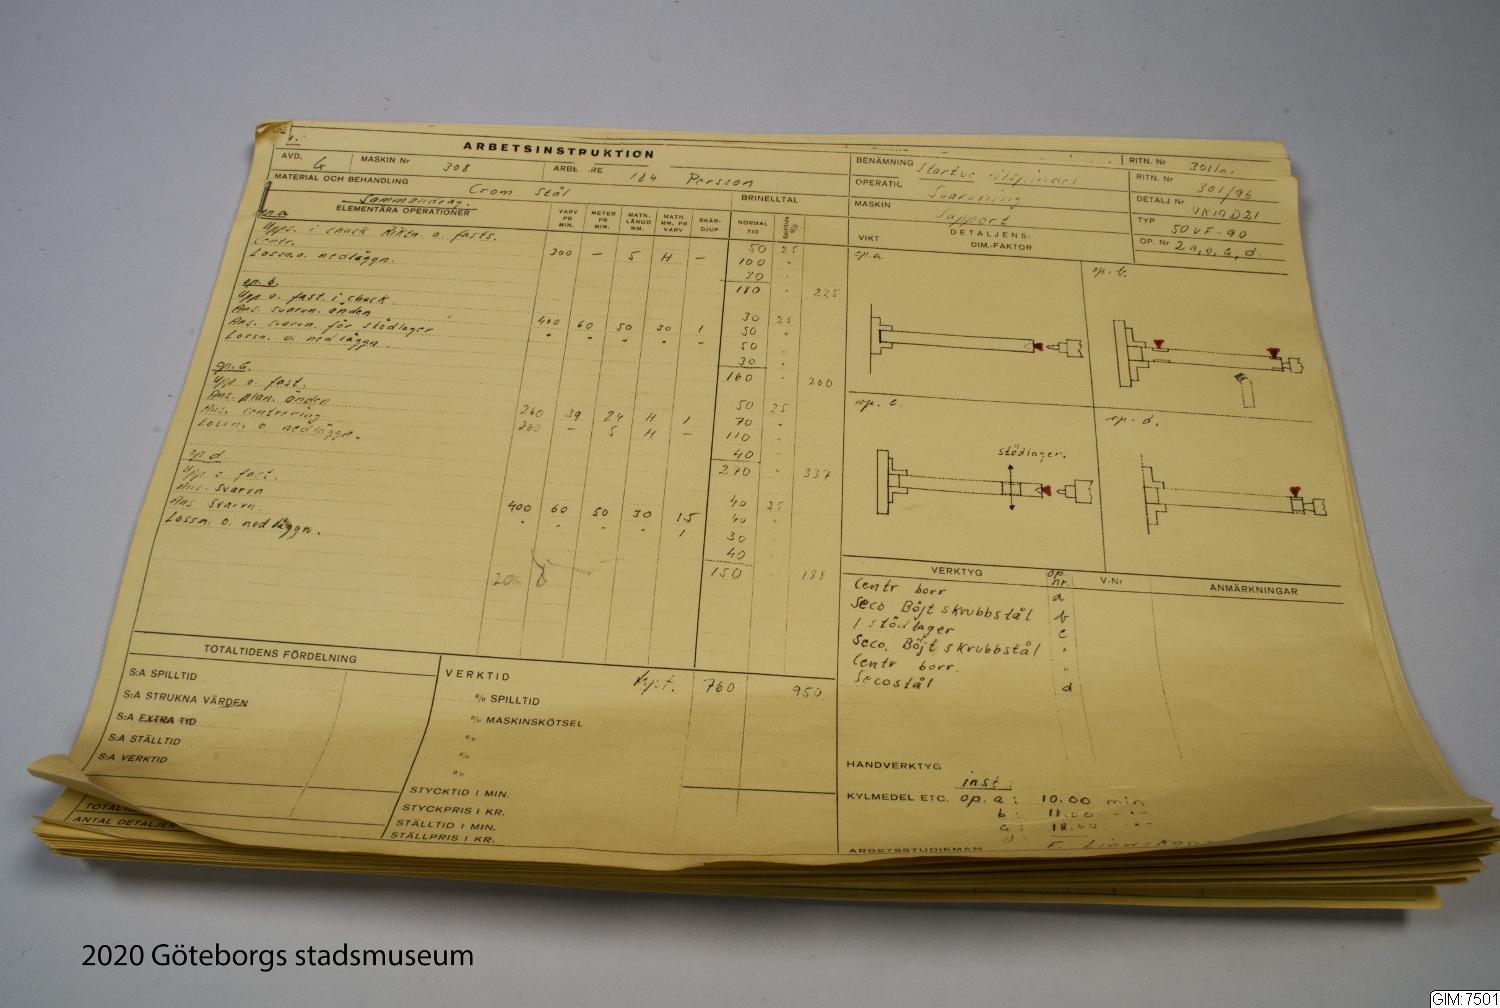 ARBETSINSTRUKTION
AVD. G MASKIN Nr 308 ARBE RE 164 Persson
MATERIAL OCH BEHANDLING Crom stål BRINELLTAL
BENÄMNING
OPERATIO Svarvning
MASKIN Support
VIKT DETALJENS: DIM.-FAKTOR
RITN. Nr
RITN. Nr 301/96
DETALJ Nr
TYP 50VF-90
OP. Nr
Sammandrag.
ELEMENTÄRA OPERATIONER VARV PR MIN. METER PR MIN. MATN. LÄNGD MM. MATN. MM. PR VARV SKÄR-DJUP NORMAL TID
op.a
Upps. i chuck Riktn. o. fasts. 50 25
Centr. 200 – 5 H – 100 "
Lossn. o. nedläggn. 30 "
180 " 225
op. b.
Upp o. fast. i chuck 30 25
Ans. svarvn. änden 400 60 50 30 1 50 "
Ans. svarvn. för stödlager " " " " " 50 "
Lossn. o. nedläggn. 30 "
160 " 200
op. c.
Upp o. fast. 50 25
Ans. plan. änden 260 39 24 H 1 70 "
Ans. centrering 260 – 5 H – 110 "
Lossn. o nedläggn. 40 "
270 " 337
op d
Upp o fast. 40 25
Ans. svarvn 400 60 50 30 1.5 40 "
Ans svarvn. " " " " 1 30 "
Lossn. o. nedläggn. 40 "
150 188
op. a
op. b.
op. c.
op. d.
stödlager.
VERKTYG op. nr. V-Nr ANMÄRKNINGAR
Centr borr a
Seco Böjt skrubbstål b
1 stödlager c
Seco. Böjt skrubbstål "
Centr borr. "
Secostål d
TOTALTIDENS FÖRDELNING
S:A SPILLTID
S:A STRUKNA VÄRDEN
S:A EXTRA TID
S:A STÄLLTID
S:A VERKTID
ANTAL DETALJER
VERKTID 760 950
% SPILLTID
% MASKINSKÖTSEL
%
%
%
STYCKTID I MIN.
STYCKPRIS I KR.
STÄLLTID I MIN.
STÄLLPRIS I KR.
HANDVERKTYG
inst.
KYLMEDEL ETC. op. a: 10.00 min
b: 11.00 -"-
c: 18.00 -"-
ARBETSSTUDIEMAN
2020 Göteborgs stadsmuseum
GIM:7501